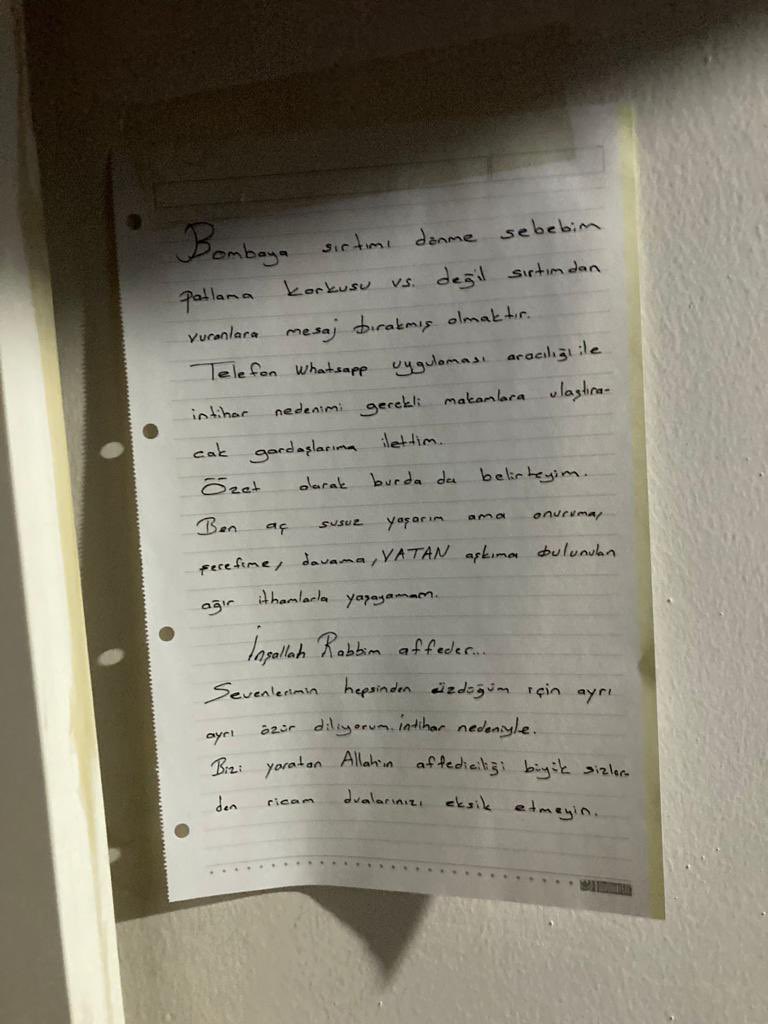 Bombaya sırtımı dönme sebebim
patlama korkusu vs. değil sırtımdan
vuranlara mesaj bırakmış olmaktır.
Telefon Whatsapp uygulaması aracılığı ile
intihar nedenimi gerekli makamlara ulaştıra-
cak gardaşlarıma ilettim.
Özet olarak burda da belirteyim.
Ben aç susuz yaşarım ama onuruma,
şerefime, davama, VATAN aşkıma bulunulan
ağır ithamlarla yaşayamam.
İnşallah Rabbim affeder...
Sevenlerimin hepsinden üzdüğüm için ayrı
ayrı özür diliyorum. intihar nedeniyle.
Bizi yaratan Allah'ın affediciliği büyük sizler-
den ricam dualarınızı eksik etmeyin.